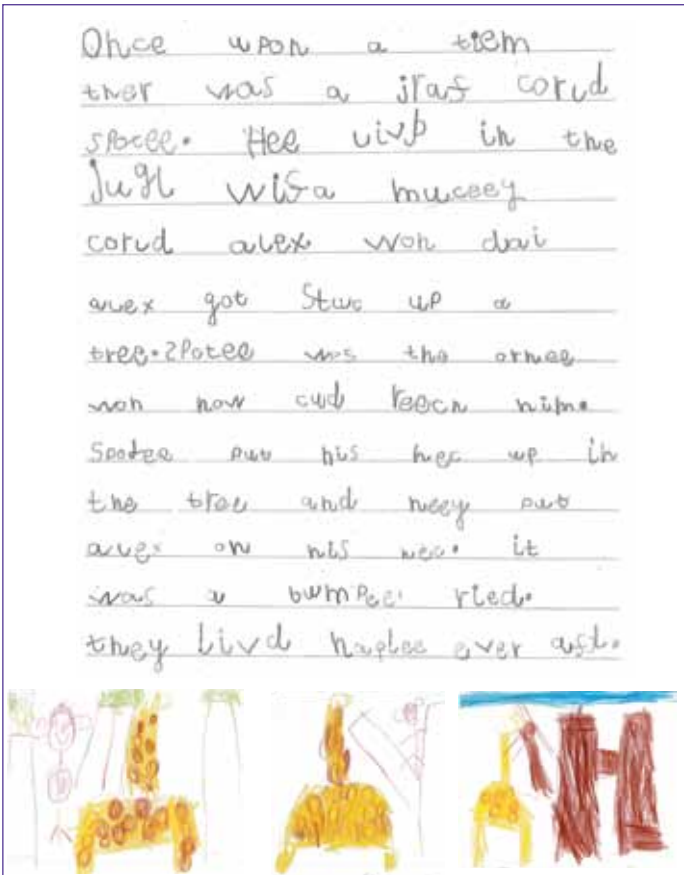 Once upon a tiem
ther was a jraf corld
spotee. Hee livd in the
jugl wifa muceey
corld alex won dai
alex got Stuc up a
tree. Spotee was the ornee
won how cud reech him.
Spotee put his nec up in
the tree and heey put
alex on his nec. it
was a bumpee ried.
they livd haplee ever aft.